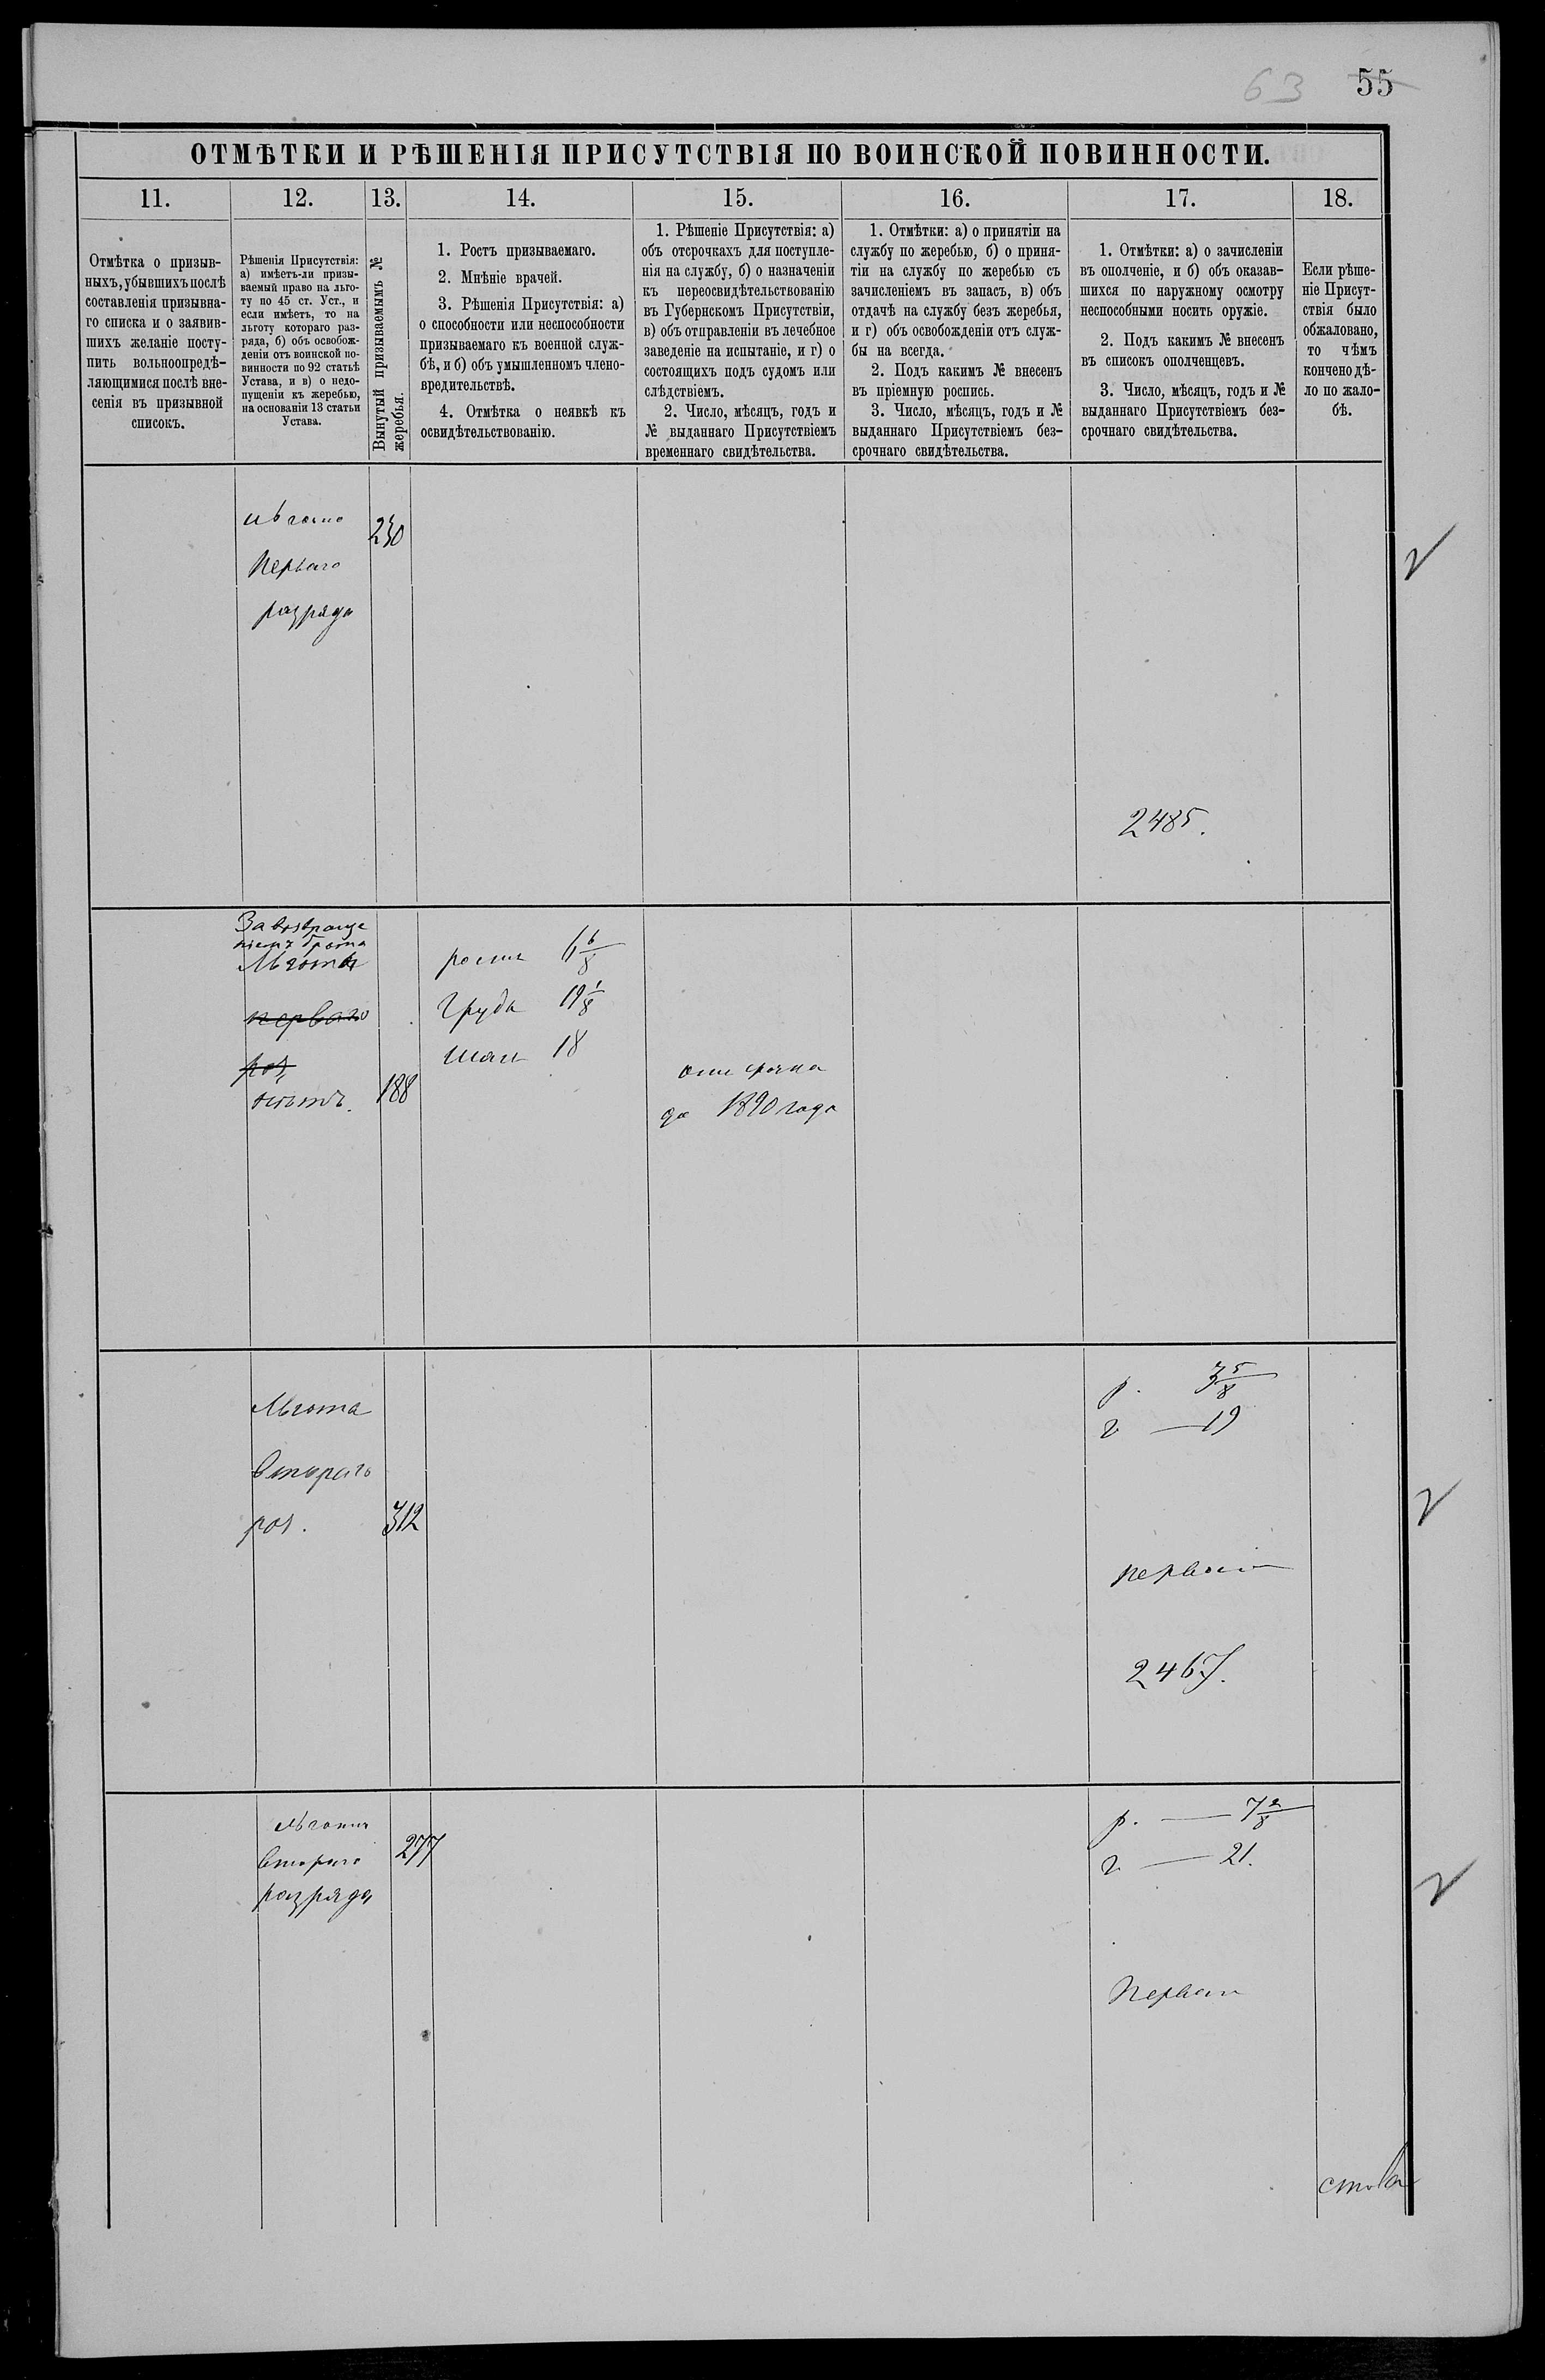 63 55
ОТМѢТКИ И РѢШЕНІЯ ПРИСУТСТВІЯ ПО ВОИНСКОЙ ПОВИННОСТИ.
11.
12.
13.
14.
15.
16.
17.
18.
Отмѣтка о призыв-
ныхъ, убывшихъ послѣ
составленія призывна-
го списка и о заявив-
шихъ желаніе посту-
пить вольноопредѣ-
ляющимися послѣ вне-
сенія въ призывной
списокъ.
Рѣшенія Присутствія:
а) имѣетъ-ли призы-
ваемый право на льго-
ту по 45 ст. Уст., и
если имѣетъ, то на
льготу котораго раз-
ряда, б) объ освобож-
деніи отъ воинской по-
винности по 92 статьѣ
Устава, и в) о недо-
пущеніи къ жеребью,
на основаніи 13 статьи
Устава.
Вынутый призываемымъ №
жеребья.
1. Ростъ призываемаго.
2. Мнѣніе врачей.
3. Рѣшенія Присутствія: а)
о способности или неспособности
призываемаго къ военной служ-
бѣ, и б) объ умышленномъ члено-
вредительствѣ.
4. Отмѣтка о неявкѣ къ
освидѣтельствованію.
1. Рѣшеніе Присутствія: а)
объ отсрочкахъ для поступле-
нія на службу, б) о назначеніи
къ переосвидѣтельствованію
въ Губернскомъ Присутствіи,
в) объ отправленіи въ лечебное
заведеніе на испытаніе, и г) о
состоящихъ подъ судомъ или
слѣдствіемъ.
2. Число, мѣсяцъ, годъ и
№ выданнаго Присутствіемъ
временнаго свидѣтельства.
1. Отмѣтки: а) о принятіи на
службу по жеребью, б) о приня-
тіи на службу по жеребью съ
зачисленіемъ въ запасъ, в) объ
отдачѣ на службу безъ жеребья,
и г) объ освобожденіи отъ служ-
бы на всегда.
2. Подъ какимъ № внесенъ
въ пріемную роспись.
3. Число, мѣсяцъ, годъ и №
выданнаго Присутствіемъ без-
срочнаго свидѣтельства.
1. Отмѣтки: а) о зачисленіи
въ ополченіе, и б) объ оказав-
шихся по наружному осмотру
неспособными носить оружіе.
2. Подъ какимъ № внесенъ
въ списокъ ополченцевъ.
3. Число, мѣсяцъ, годъ и №
выданнаго Присутствіемъ без-
срочнаго свидѣтельства.
Если рѣше-
ніе Присут-
ствія было
обжаловано,
то чѣмъ
кончено дѣ-
ло по жало-
бѣ.
льгота 230
перваго
разряда
2485.
За возвраще
ніемъ брата
Льгота
перваго
раз
188
ростъ 6 6/8
Грудь 19 1/8
18
отсрочка
до 1890 года
Льгота
втораго
раз. 312
р. 3 5/8
г — 19
первый
2467.
льгота
втораго 277
разряда
р. — 7 2/8
г — 21.